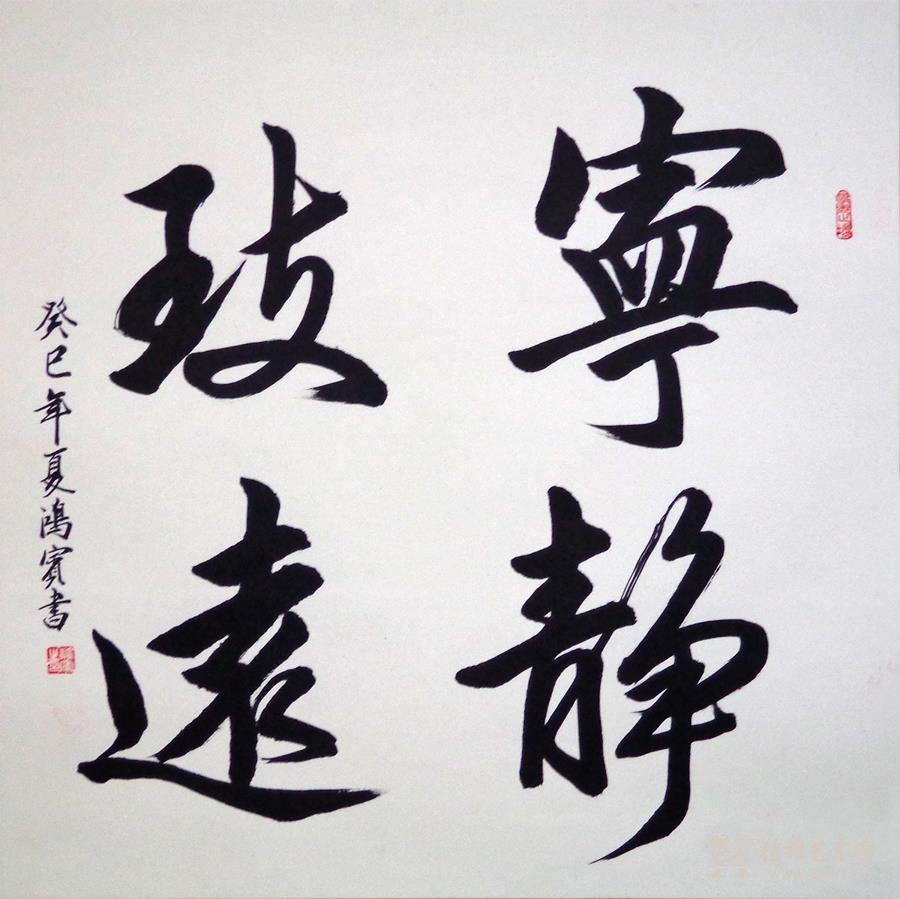 寧靜
致遠
癸巳年夏鴻賓書